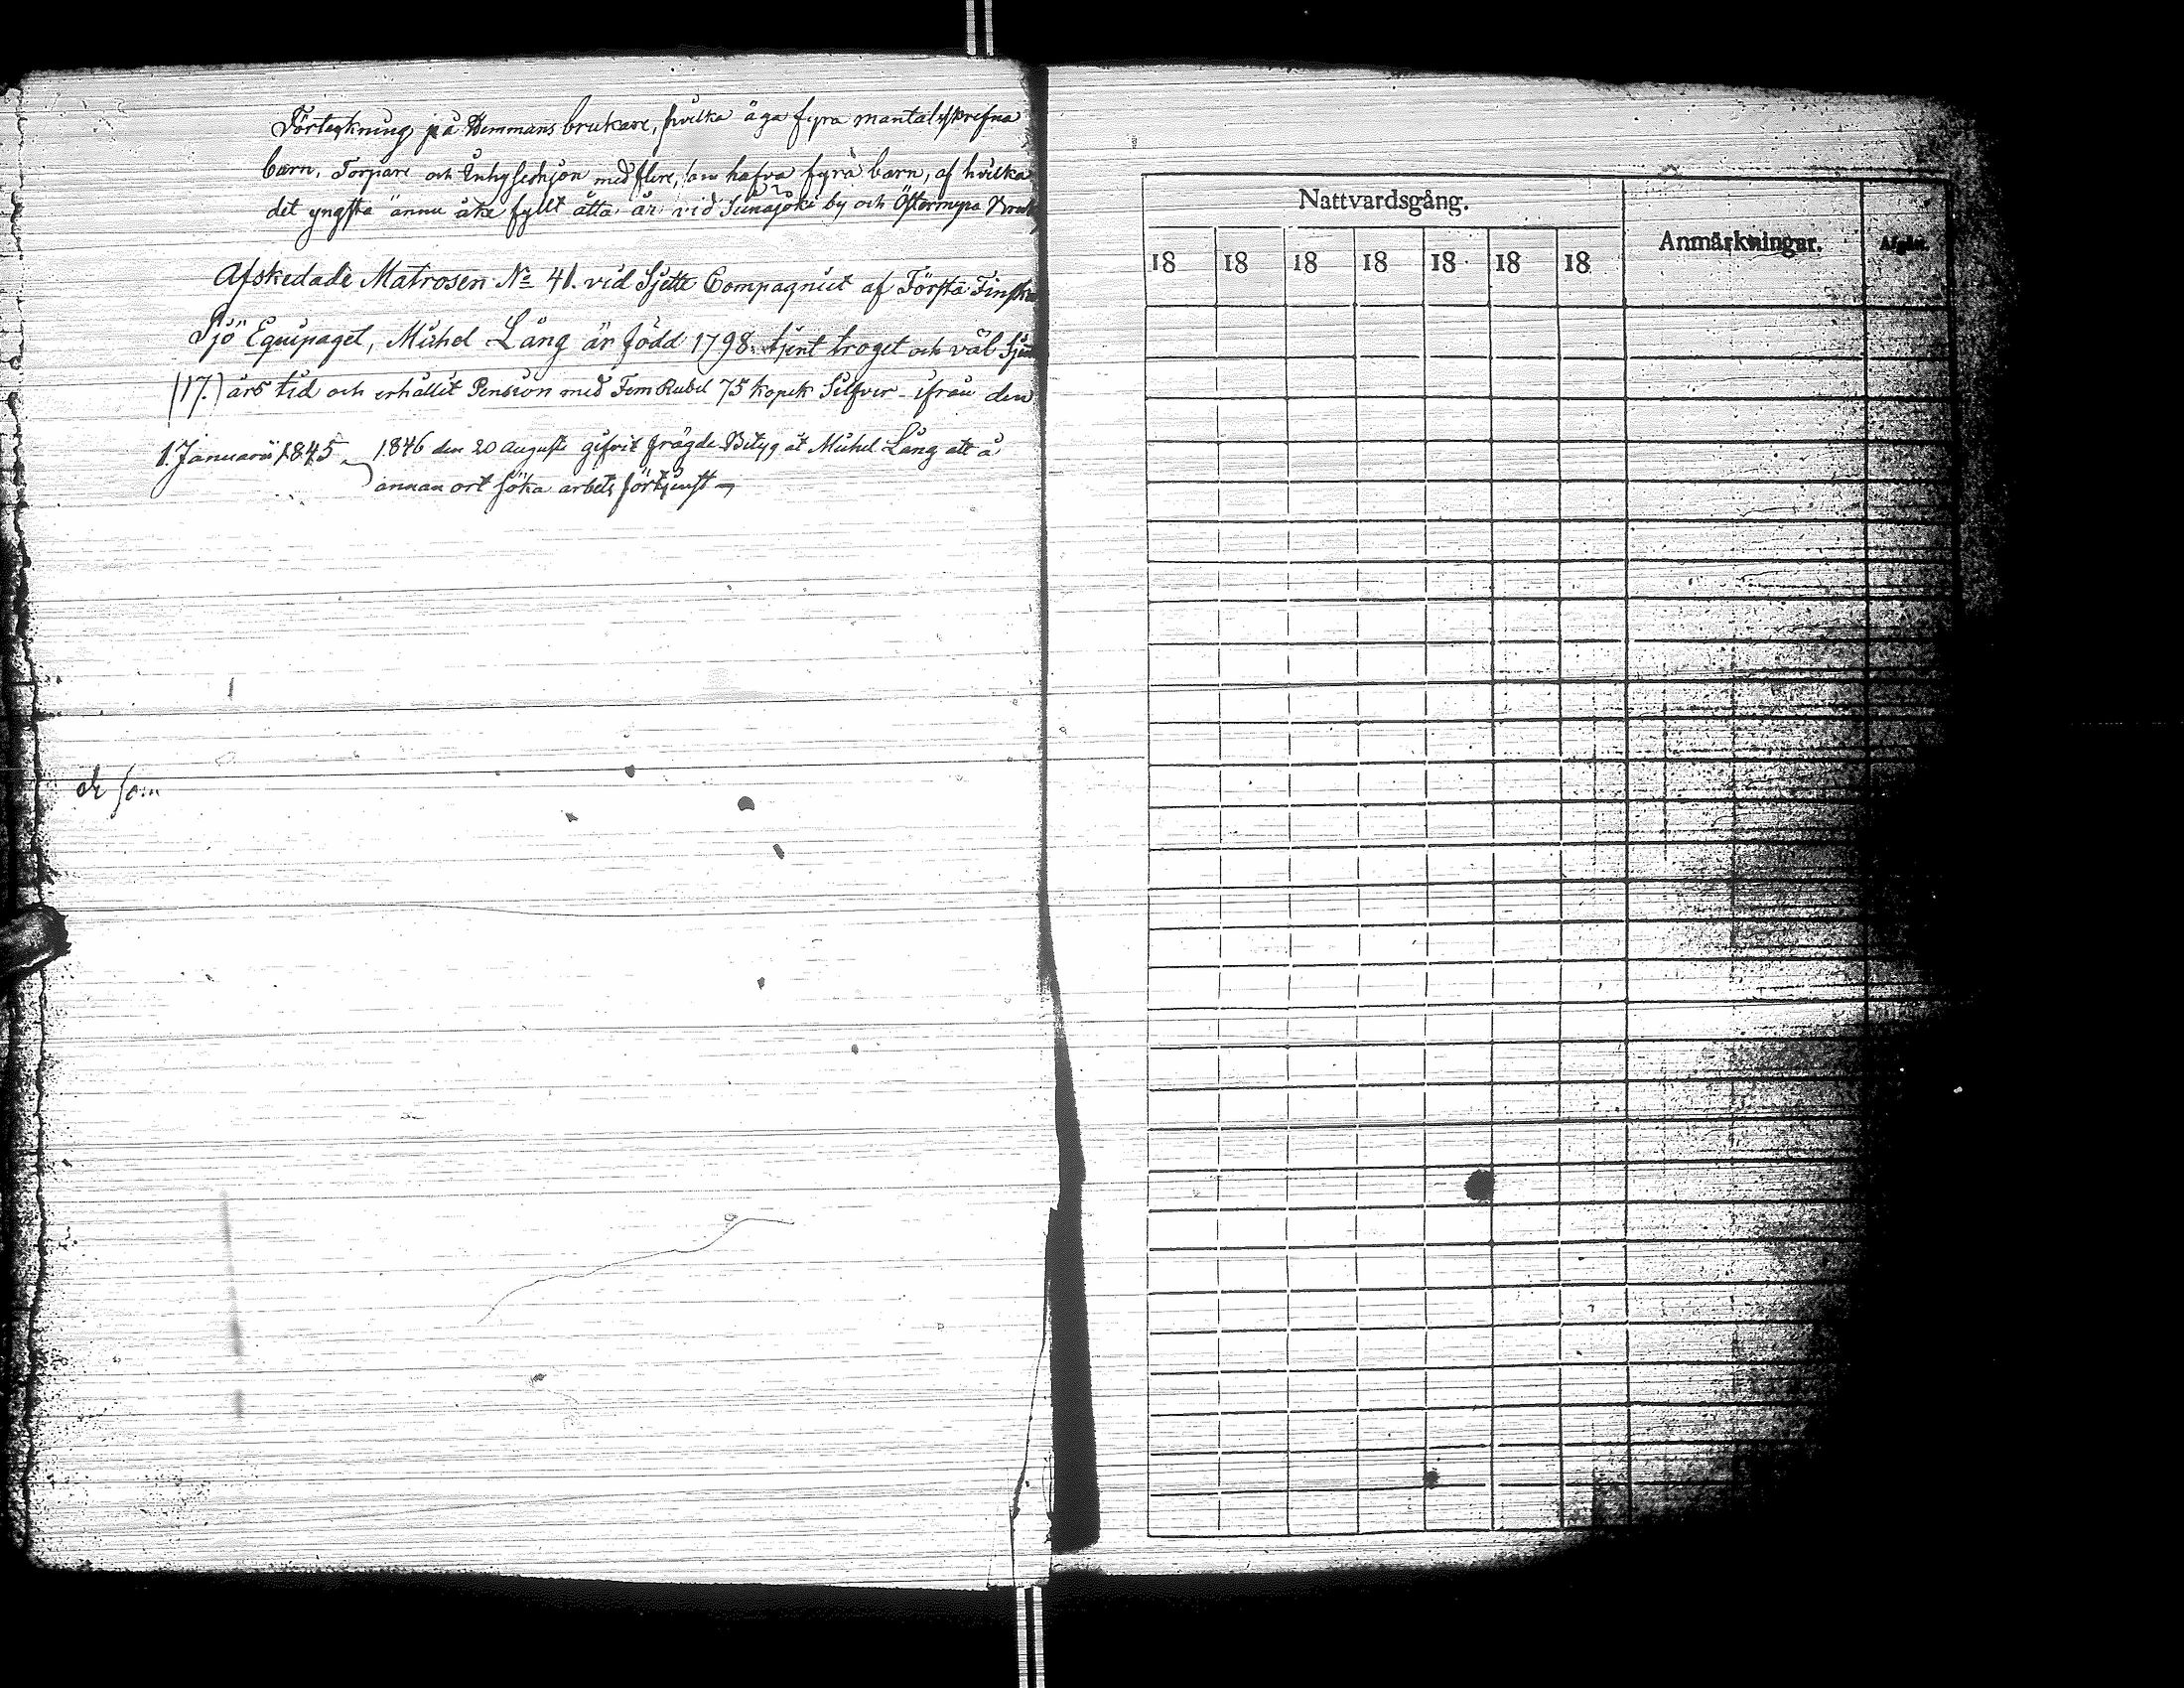 Förtekning på Hemmans brukare, hvilka äga fyra mantalsskrefna
barn, Torpare och Inhyseshjon med flere, som hafva fyra barn, af hvilka
det yngsta ännu icke fyllt åtta år vid Seinäjoki by och Östermyra Bruk
Afskedade Matrosen No 41. vid Sjette Compagniet af Första Finska
Sjö Equipaget, Michel Lång är född 1798. tjent troget och väl Sjutton
(17.) års tid och erhållit Pension med Fem Rubel 75 kopek Silfver ifrån den
1. Januarii 1845 1846 den 20 Augusti gifvit Frägde Betyg åt Michel Lång att å
annan ort söka arbets förtjenst
som
Nattvardsgång.
Anmärkningar.
18 18 18 18 18 18 18